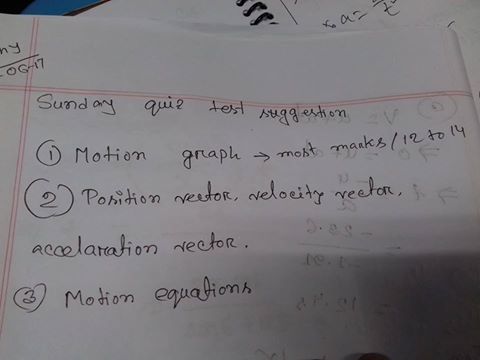 Sunday quiz test suggestion
① Motion graph → most marks/12 to 14
② Position vector, velocity vector,
accelaration vector.
③ Motion equations